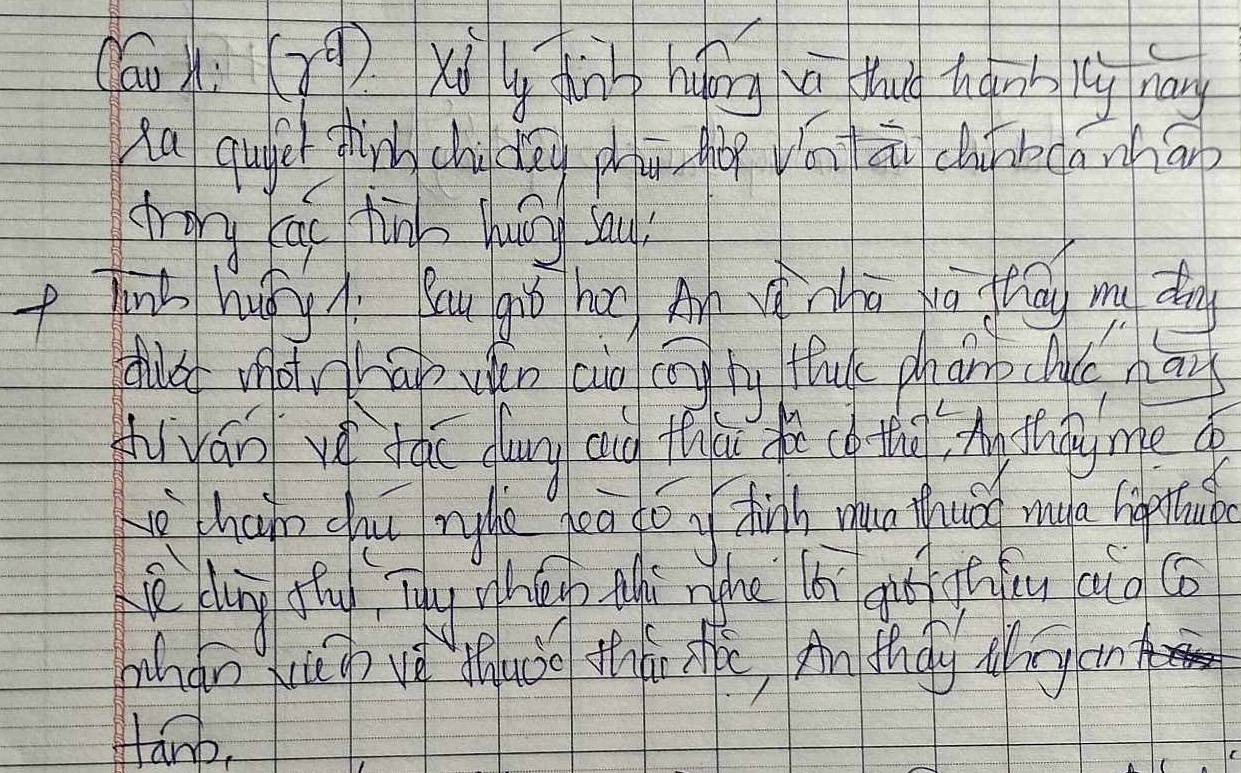 Câu 1: (7đ). Xử lý tình huống và thực hành kỹ năng
ra quyết định chi tiêu phù hợp với tài chính cá nhân
trong các tình huống sau:
+ Tình huống 1: Sau giờ học, An về nhà và thấy mẹ đang
được một nhân viên của công ty thực phẩm chức năng
tư vấn về tác dụng của thải độc cơ thể, An thấy mẹ có
vẻ chăm chú nghe và có ý định mua thuốc mua hộp thuốc
về dùng thử. Tuy nhiên khi nghe lời giới thiệu của cô
nhân viên về thuốc thải độc, An thấy không an
tâm.